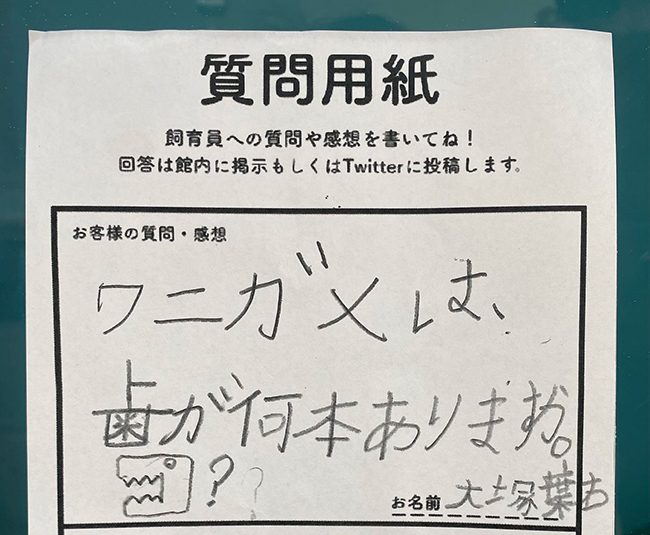 質問用紙
飼育員への質問や感想を書いてね！
回答は館内に掲示もしくはTwitterに投稿します。
お客様の質問・感想
ワニガメは、
歯が何本ありますか。
？？
お名前 大塚葉